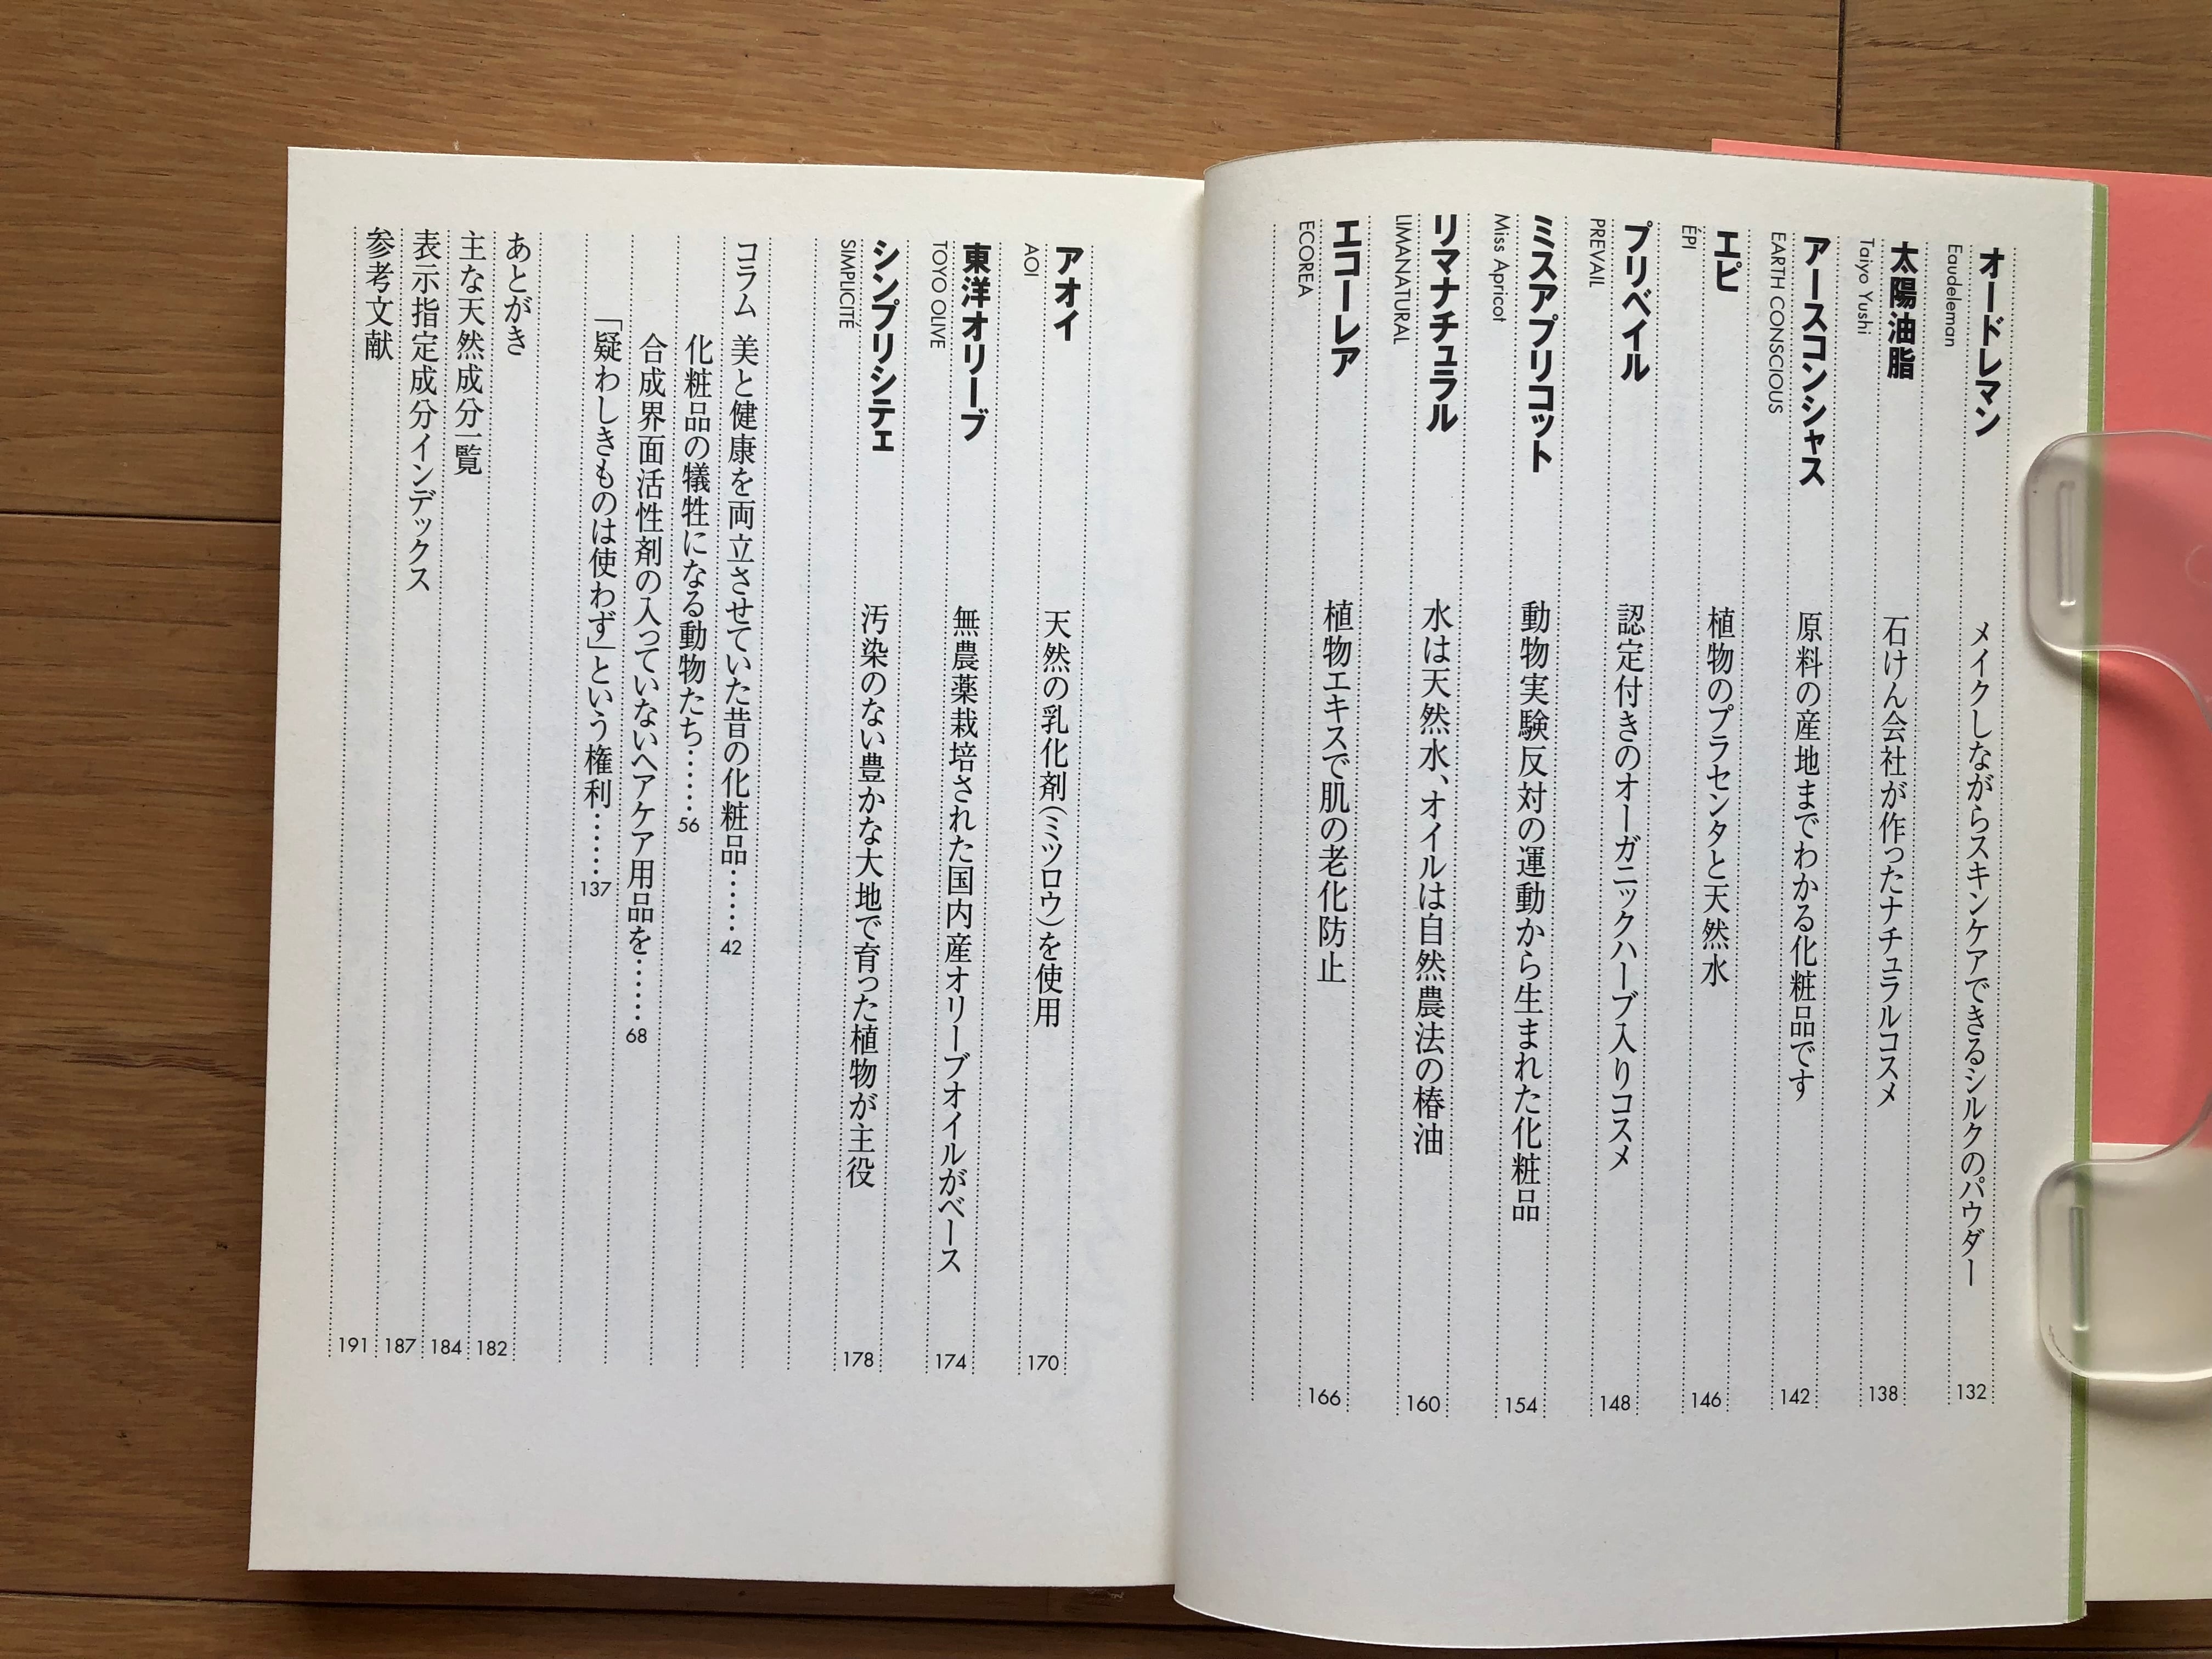 オードレマン メイクしながらスキンケアできるシルクのパウダー 132
Eaudeleman
太陽油脂 石けん会社が作ったナチュラルコスメ 138
Taiyo Yushi
アースコンシャス 原料の産地までわかる化粧品です 142
EARTH CONSCIOUS
エピ 植物のプラセンタと天然水 146
ÉPI
プリベイル 認定付きのオーガニックハーブ入りコスメ 148
PREVAIL
ミスアプリコット 動物実験反対の運動から生まれた化粧品 154
Miss Apricot
リマナチュラル 水は天然水、オイルは自然農法の椿油 160
LIMANATURAL
エコーレア 植物エキスで肌の老化防止 166
ECOREA
アオイ 天然の乳化剤(ミツロウ)を使用 170
AOI
東洋オリーブ 無農薬栽培された国内産オリーブオイルがベース 174
TOYO OLIVE
シンプリシテェ 汚染のない豊かな大地で育った植物が主役 178
SIMPLICITÉ
コラム 美と健康を両立させていた昔の化粧品……42
化粧品の犠牲になる動物たち……56
合成界面活性剤の入っていないヘアケア用品を……68
「疑わしきものは使わず」という権利……137
あとがき 182
主な天然成分一覧 184
表示指定成分インデックス 187
参考文献 191